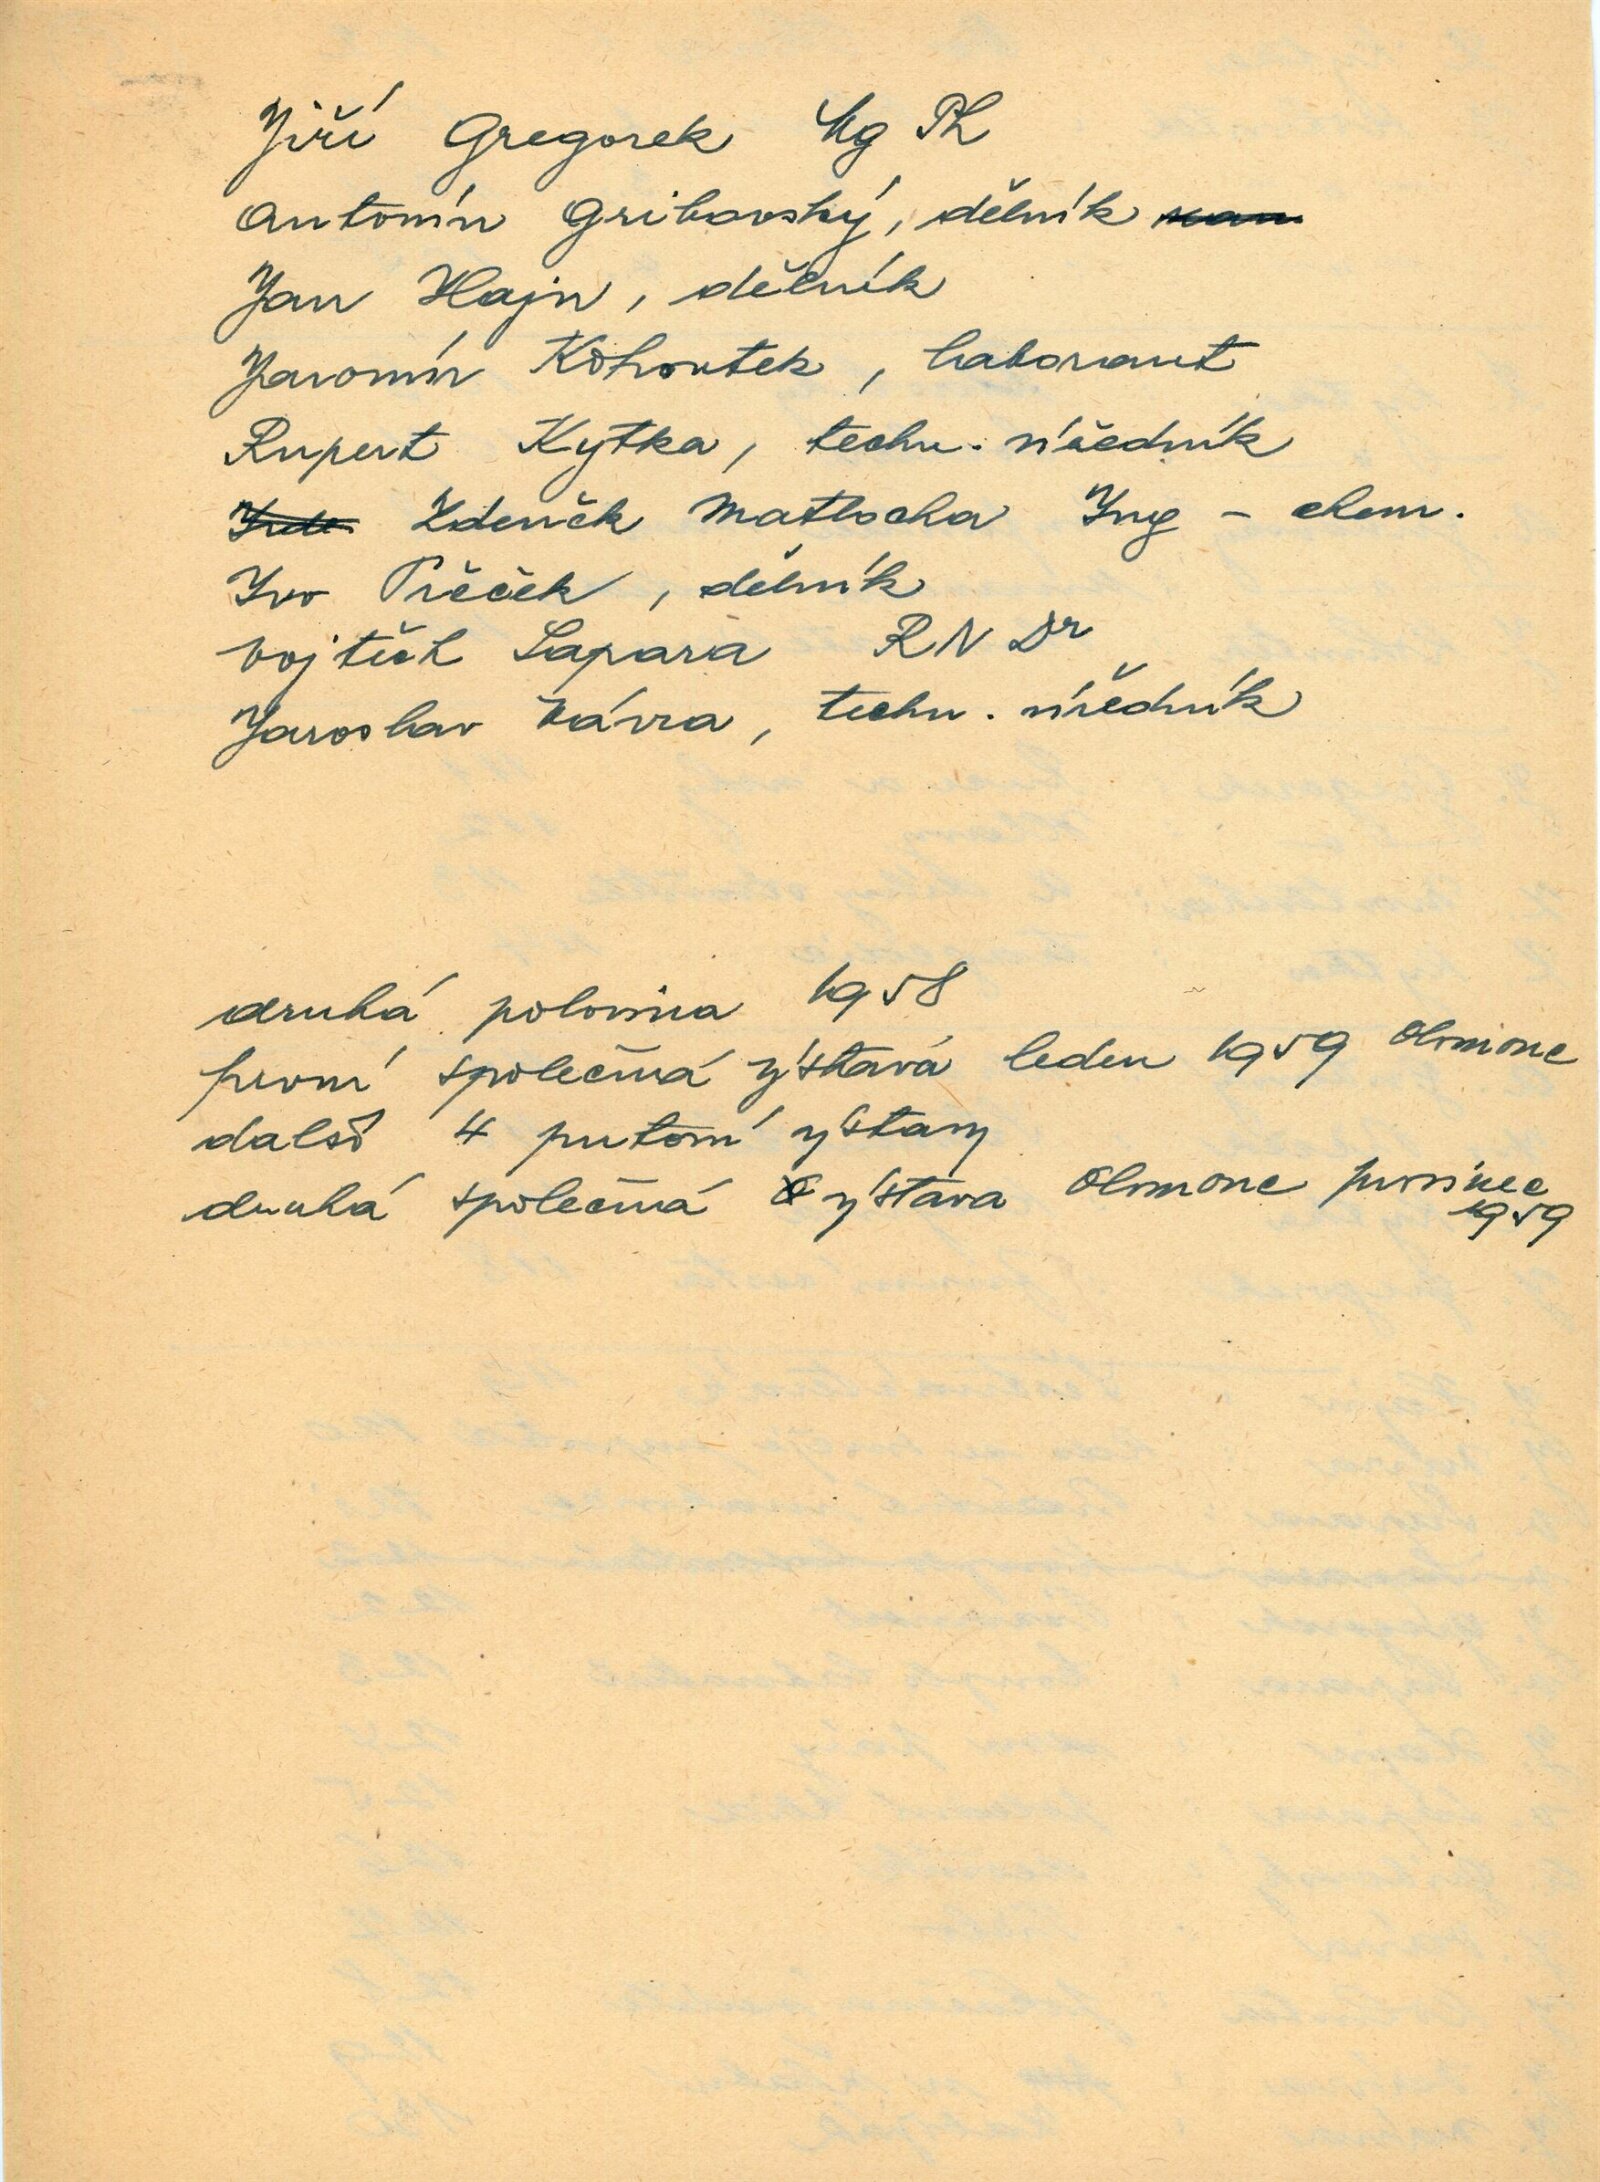 Jiří Gregorek Mg Ph
Antonín Gribovský, dělník
Jan Hajn, dělník
Jaromír Kohoutek, laborant
Rupert Kytka, techn. úředník
Zdeněk Matlocha Ing - chem.
Ivo Přeček, dělník
Vojtěch Sapara RN Dr
Jaroslav Vávra, techn. úředník
druhá polovina 1958
první společná výstava leden 1959 Olomouc
další 4 putovní výstavy
druhá společná výstava Olomouc prosinec
1959